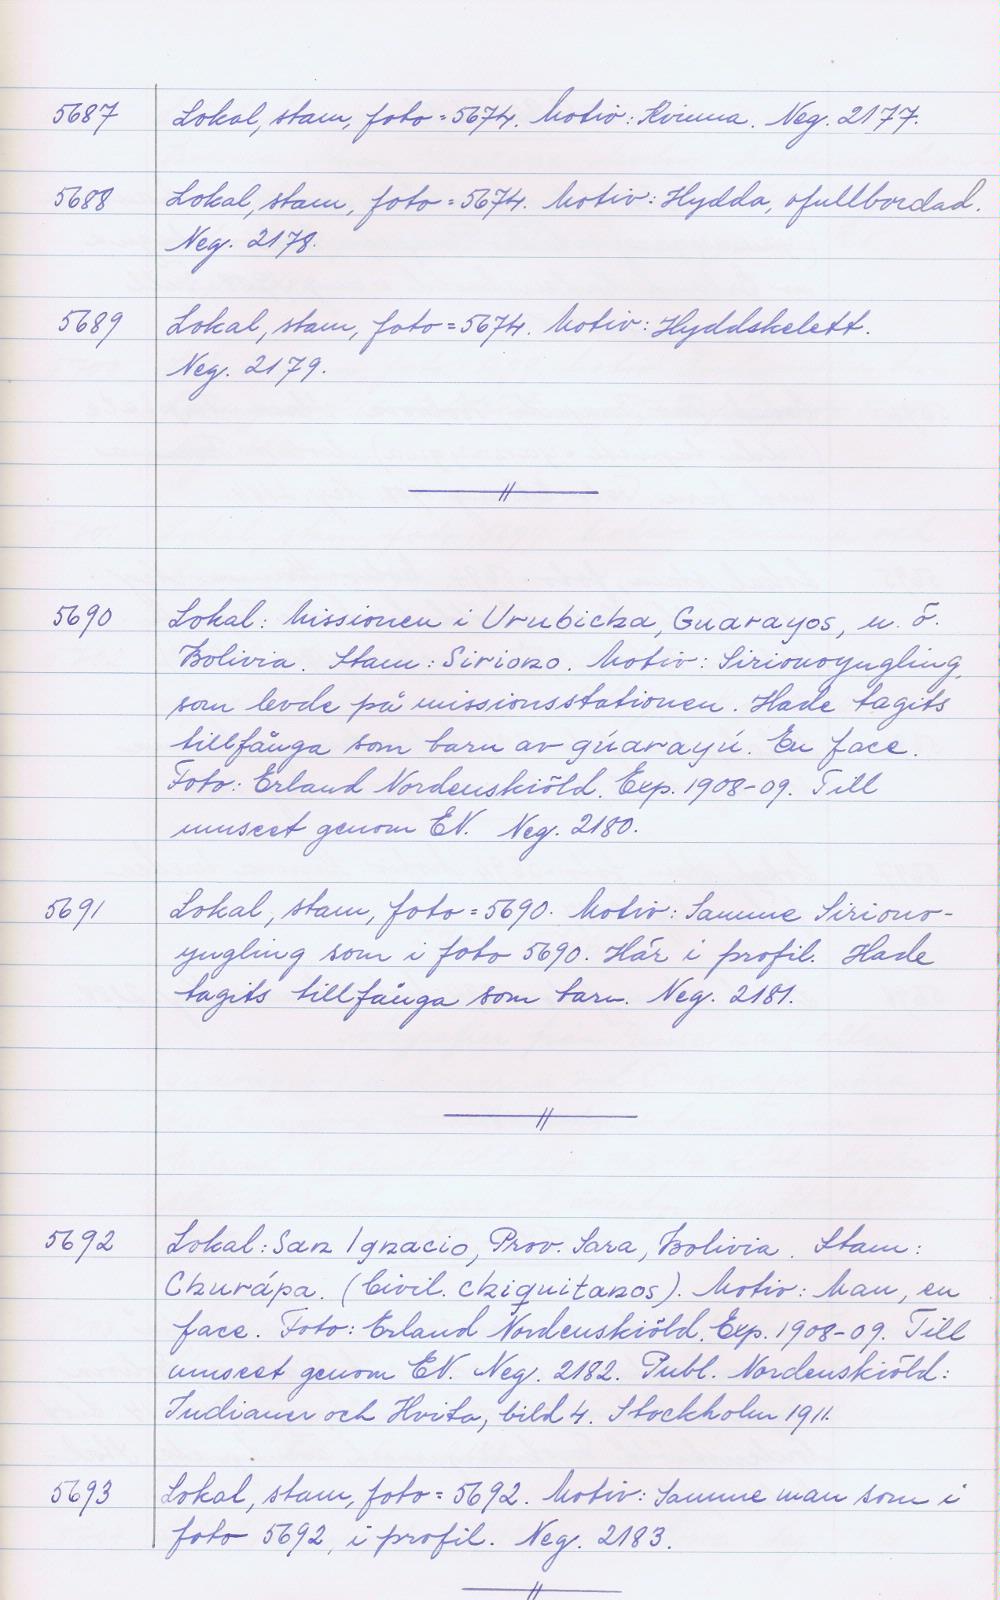 5687 Lokal, stam, foto = 5674. Motiv: Kvinna. Neg. 2177.
5688 Lokal, stam, foto = 5674. Motiv: Hydda, ofullbordad.
Neg. 2178.
5689 Lokal, stam, foto = 5674. Motiv: Hyddskelett.
Neg. 2179.
5690 Lokal: Missionen i Urubicha, Guarayos, n. ö.
Bolivia. Stam: Siriono. Motiv: Sirionoyngling,
som levde på missionsstationen. Hade tagits
tillfånga som barn av gúarayú. En face.
Foto: Erland Nordenskiöld. Exp. 1908-09. Till
museet genom EN. Neg. 2180.
5691 Lokal, stam, foto = 5690. Motiv: Samme Siriono-
yngling som i foto 5690. Här i profil. Hade
tagits tillfånga som barn. Neg. 2181.
5692 Lokal: San Ignacio, Prov. Sara, Bolivia. Stam:
Churápa. (Civil. chiquitanos). Motiv: Man, en
face. Foto: Erland Nordenskiöld. Exp. 1908-09. Till
museet genom EN. Neg. 2182. Publ. Nordenskiöld:
Indianer och Hvita, bild 4. Stockholm 1911.
5693 Lokal, stam, foto = 5692. Motiv: Samme man som i
foto 5692, i profil. Neg. 2183.